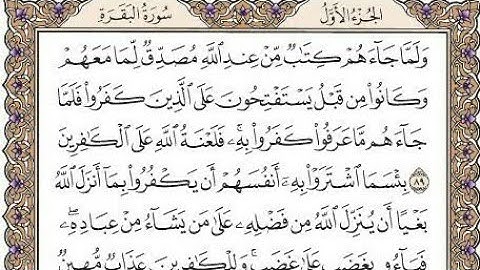 سُورَةُ البَقَرَةِ الجُزْءُ الأَوَّلُ
وَلَمَّا جَآءَهُمْ كِتَٰبٌ مِّنْ عِندِ ٱللَّهِ مُصَدِّقٌ لِّمَا مَعَهُمْ
وَكَانُوا۟ مِن قَبْلُ يَسْتَفْتِحُونَ عَلَى ٱلَّذِينَ كَفَرُوا۟ فَلَمَّا
جَآءَهُم مَّا عَرَفُوا۟ كَفَرُوا۟ بِهِۦ ۚ فَلَعْنَةُ ٱللَّهِ عَلَى ٱلْكَٰفِرِينَ
٨٩ بِئْسَمَا ٱشْتَرَوْا۟ بِهِۦٓ أَنفُسَهُمْ أَن يَكْفُرُوا۟ بِمَآ أَنزَلَ ٱللَّهُ
بَغْيًا أَن يُنَزِّلَ ٱللَّهُ مِن فَضْلِهِۦ عَلَىٰ مَن يَشَآءُ مِنْ عِبَادِهِۦ ۖ
فَبَآءُو بِغَضَبٍ عَلَىٰ غَضَبٍ ۚ وَلِلْكَٰفِرِينَ عَذَابٌ مُّهِينٌ